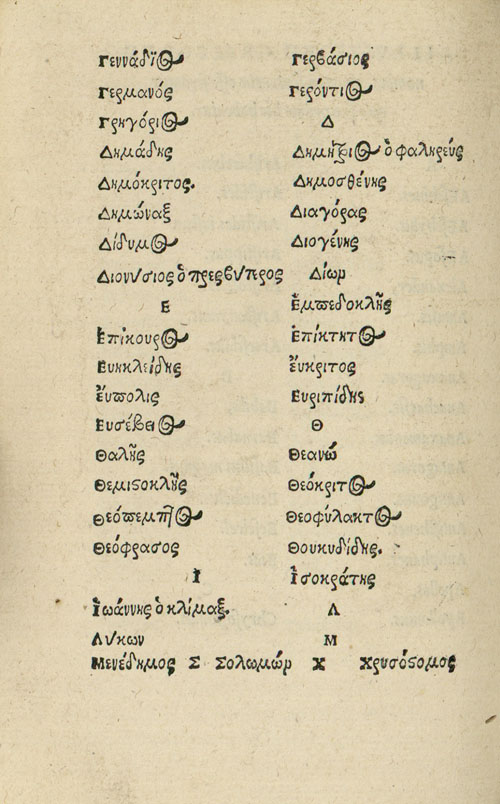 Γεννάδιος Γερβάσιος
Γερμανός Γερόντιος
Γρηγόριος Δ
Δημάδης Δημήτριος ὁ φαληρεύς
Δημόκριτος. Δημοσθένης
Δημώναξ Διαγόρας
Δίδυμος Διογένης
Διονύσιος ὁ πρεσβύτερος Δίωρ
Ε Ἐμπεδοκλῆς
Ἐπίκουρος Ἐπίκτητος
Εὐκλείδης εὔκριτος
εὔπολις Εὐριπίδης
Εὐσέβειος Θ
Θαλῆς Θεανώ
Θεμιϛοκλῆς Θεόκριτος
Θεόπεμπτος Θεοφύλακτος
Θεόφραϛος Θουκυδίδης.
Ι Ἰσοκράτης
Ἰωάννης ὁ κλίμαξ. Λ
Λύκων Μ
Μενέδημος Σ Σολωμώρ Χ Χρυσόϛομος